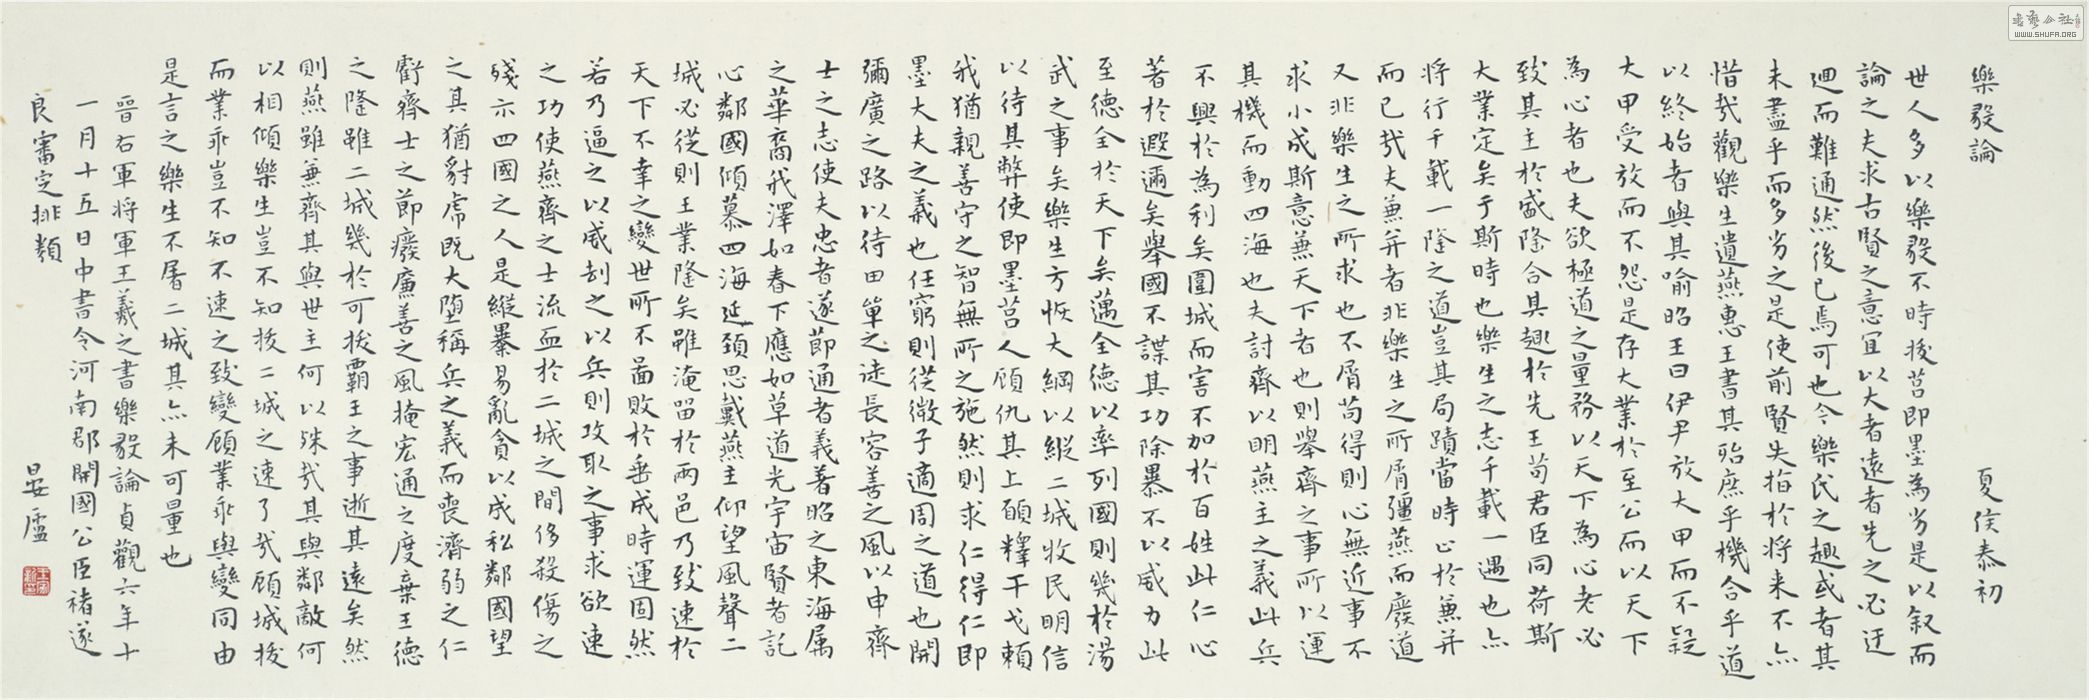 樂毅論 夏侯泰初
世人多以樂毅不時拔莒即墨為劣是以叙而
論之夫求古賢之意宜以大者遠者先之必迂
迴而難通然後已焉可也今樂氏之趣或者其
未盡乎而多劣之是使前賢失指於将来不亦
惜哉觀樂生遺燕惠王書其殆庶乎機合乎道
以終始者與其喻昭王曰伊尹放大甲而不疑
大甲受放而不怨是存大業於至公而以天下
為心者也夫欲極道之量務以天下為心者必
致其主於盛隆合其趣於先王苟君臣同符斯
大業定矣于斯時也樂生之志千載一遇也亦
将行千載一隆之道豈其局蹟當時止於兼并
而已哉夫兼并者非樂生之所屑彊燕而廢道
又非樂生之所求也不屑苟得則心無近事不
求小成斯意兼天下者也則舉齊之事所以運
其機而動四海也夫討齊以明燕主之義此兵
不興於為利矣圍城而害不加於百姓此仁心
著於遐邇矣舉國不謀其功除暴不以威力此
至德全於天下矣邁全德以率列國則幾於湯
武之事矣樂生方恢大綱以縱二城牧民明信
以待其弊使即墨莒人顧仇其上願釋干戈賴
我猶親善守之智無所之施然則求仁得仁即
墨大夫之義也任窮則從微子適周之道也開
彌廣之路以待田單之徒長容善之風以申齊
士之志使夫忠者遂節通者義著昭之東海属
之華裔我澤如春下應如草道光宇宙賢者託
心鄰國傾慕四海延頸思戴燕主仰望風聲二
城必從則王業隆矣雖淹留於兩邑乃致速於
天下不幸之變世所不啚敗於垂成時運固然
若乃逼之以威刧之以兵則攻取之事求欲速
之功使燕齊之士流血於二城之間侈殺傷之
殘示四國之人是縱暴易亂貪以成私鄰國望
之其猶豺虎既大墮稱兵之義而喪濟弱之仁
虧齊士之節癈廉善之風掩宏通之度棄王德
之隆雖二城幾於可拔霸王之事逝其遠矣然
則燕雖兼齊其與世主何以殊哉其與鄰敵何
以相傾樂生豈不知拔二城之速了哉顧城拔
而業乖豈不知不速之致變顧業乖與變同由
是言之樂生不屠二城其亦未可量也
晉右軍将軍王羲之書樂毅論貞觀六年十
一月十五日中書令河南郡開國公臣褚遂
良審定排類 晏廬
書藝公社
WWW.SHUFA.ORG